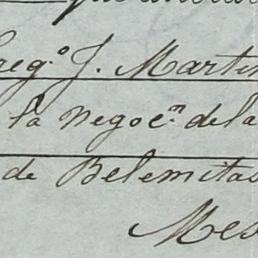 Greg.º J. Martin
la negoc.ⁿ de la
de Belemitas
Mes